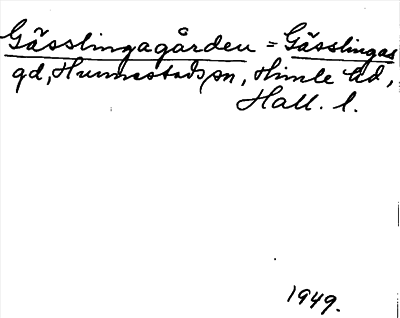 Gässlingagården = Gässlingas
gd, Hunnestads sn, Himle hd,
Hall. l.
1949.